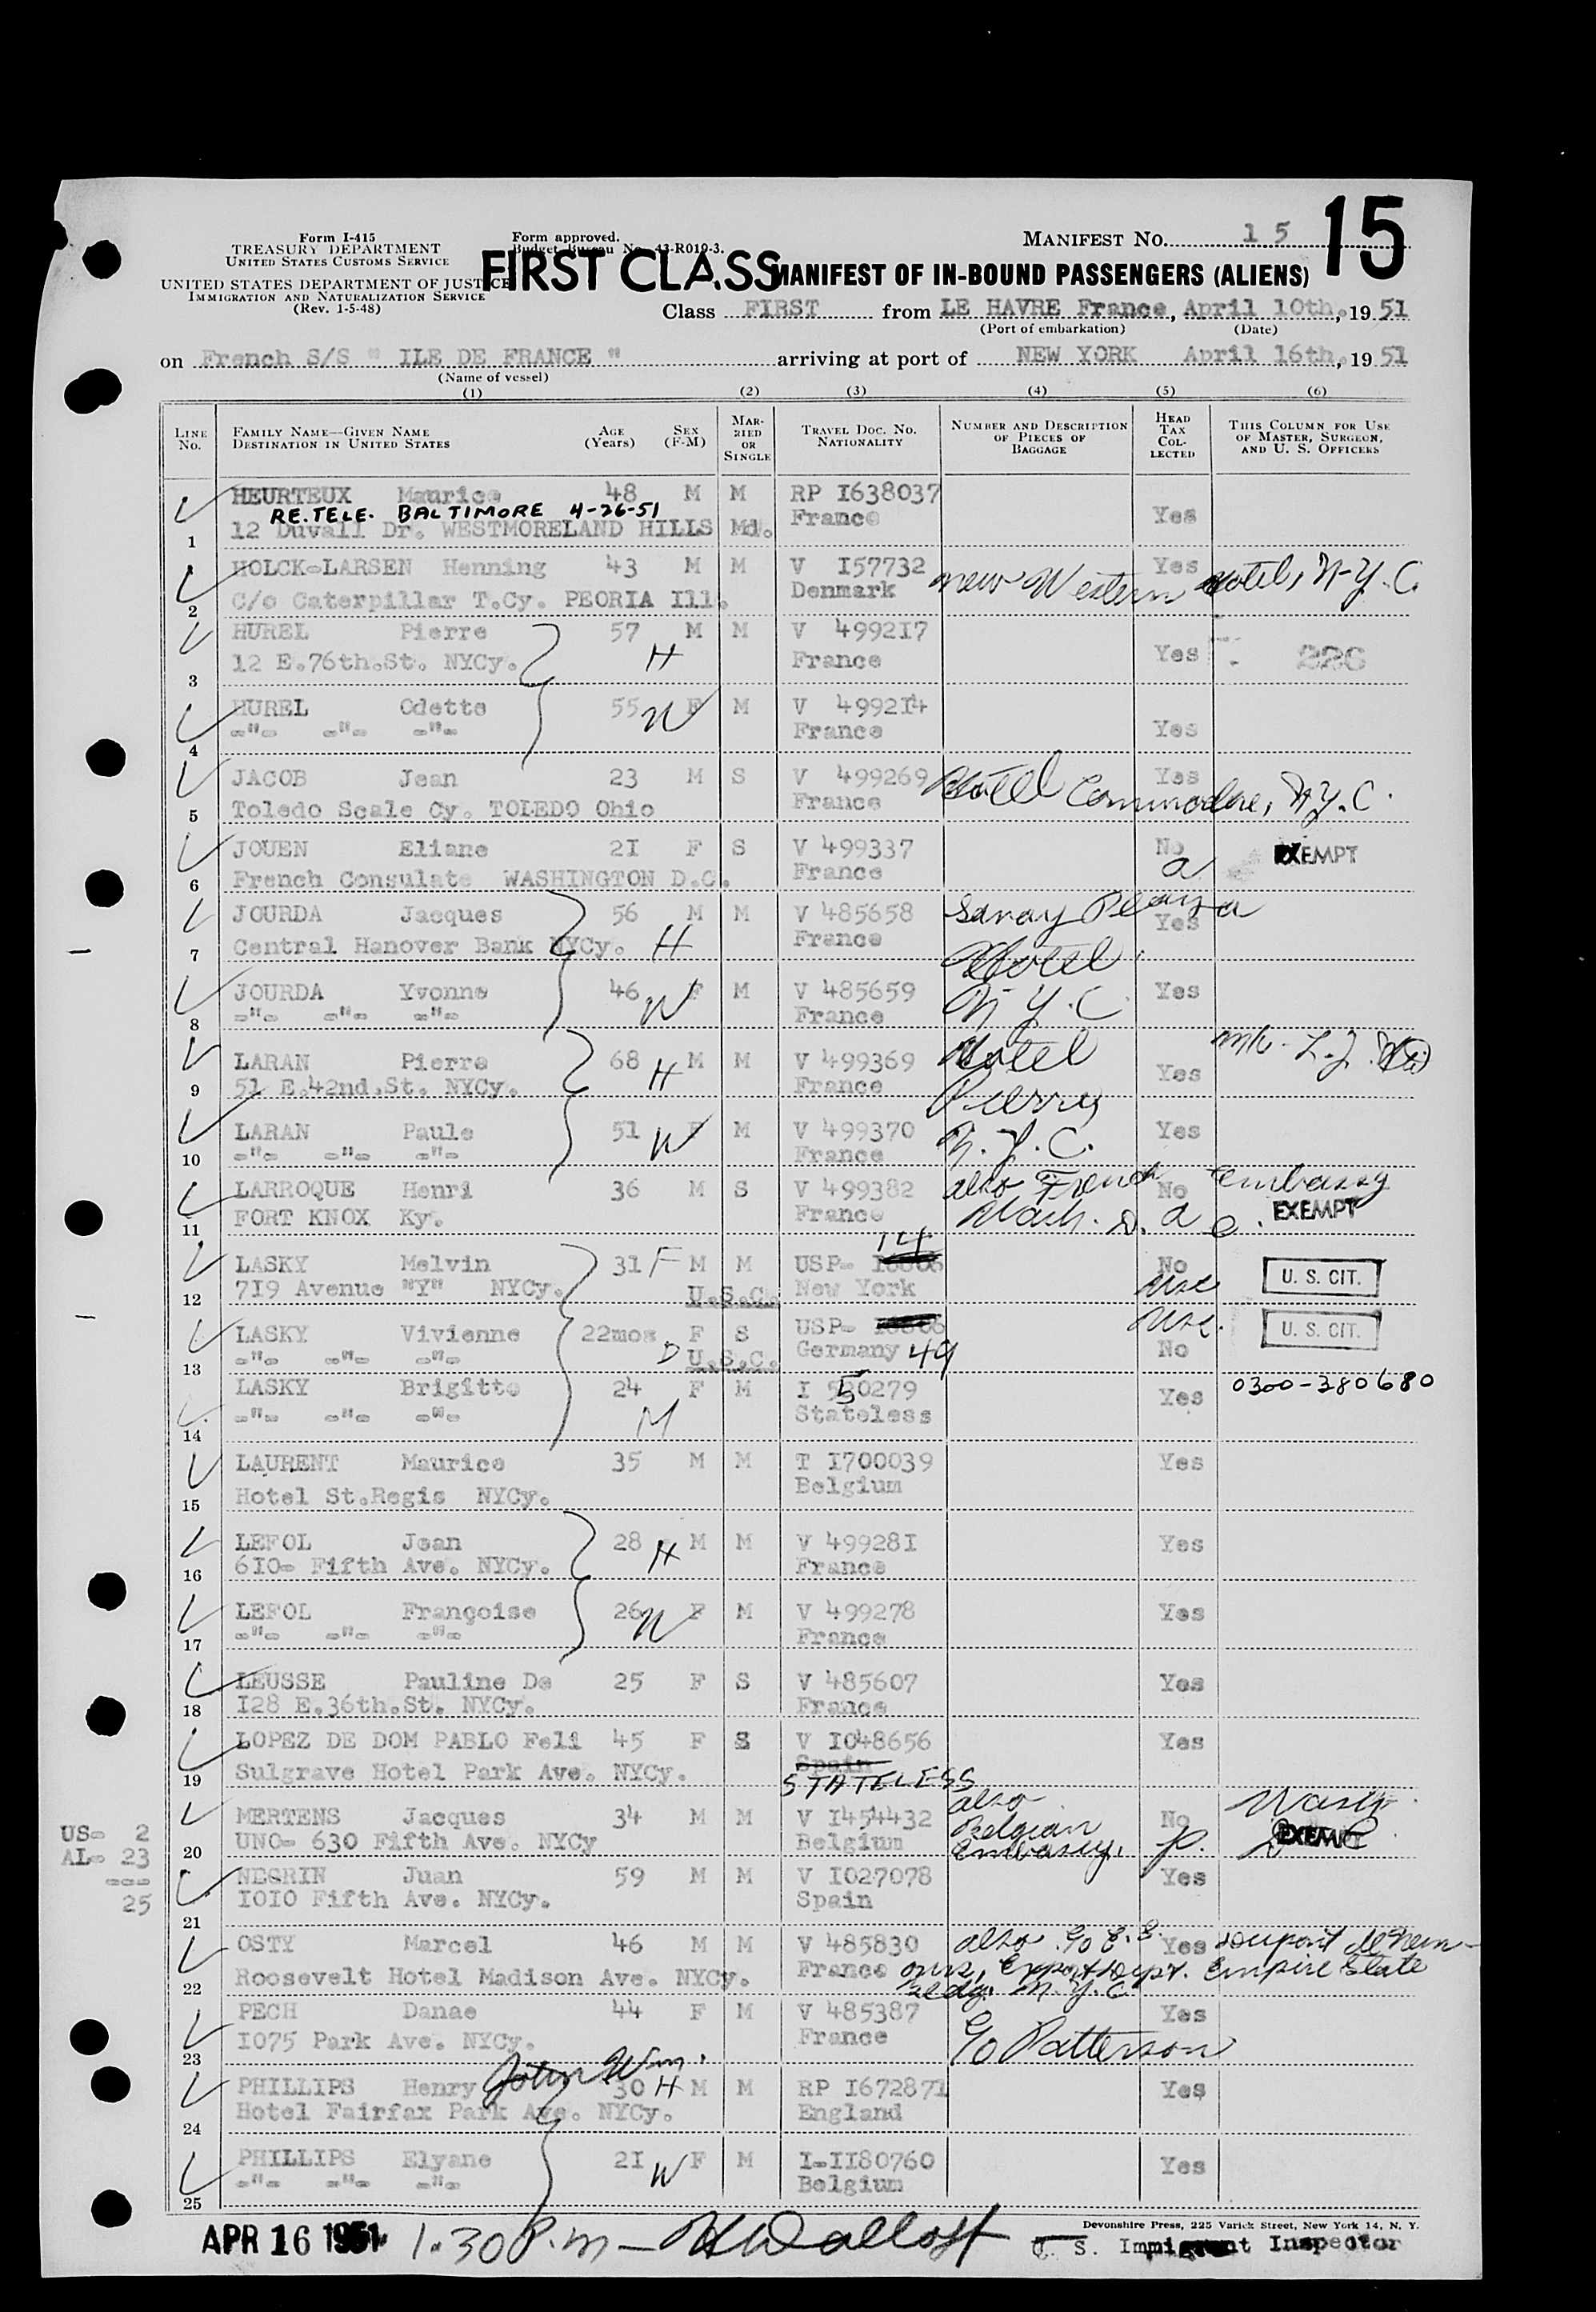 15
Form I-415
TREASURY DEPARTMENT
UNITED STATES CUSTOMS SERVICE
UNITED STATES DEPARTMENT OF JUSTICE
IMMIGRATION AND NATURALIZATION SERVICE
(Rev. 1-5-48)
Form approved.
Budget Bureau No. 43-R019-3.
MANIFEST NO. 15
FIRST CLASS
MANIFEST OF IN-BOUND PASSENGERS (ALIENS)
Class FIRST from LE HAVRE France, April 10th, 1951
(Port of embarkation) (Date)
on French S/S " ILE DE FRANCE " arriving at port of NEW YORK April 16th, 1951
(Name of vessel)
(1) (2) (3) (4) (5) (6)
LINE NO. FAMILY NAME—GIVEN NAME DESTINATION IN UNITED STATES AGE (Years) SEX (F-M) MARRIED OR SINGLE TRAVEL DOC. NO. NATIONALITY NUMBER AND DESCRIPTION OF PIECES OF BAGGAGE HEAD TAX COLLECTED THIS COLUMN FOR USE OF MASTER, SURGEON, AND U. S. OFFICERS
HEURTEUX Maurice 48 M M RP I638037
RE.TELE. BALTIMORE 4-26-51
1 12 Duvall Dr. WESTMORELAND HILLS Md. France Yes
HOLCK-LARSEN Henning 43 M M V I57732 Yes
new Western Hotel, N.Y.C.
2 C/o Caterpillar T.Cy. PEORIA Ill. Denmark
HUREL Pierre 57 M M V 4992I7
3 12 E.76th.St. NYCy. H France Yes 226
HUREL Odette 55 W F M V 4992I4
4 -"- -"- -"- France Yes
JACOB Jean 23 M S V 499269 Yes
Hotel Commodore, N.Y.C.
5 Toledo Scale Cy. TOLEDO Ohio France
JOUEN Eliane 2I F S V 499337 No EXEMPT
6 French Consulate WASHINGTON D.C. France a
JOURDA Jacques 56 M M V 485658 Savoy Plaza Yes
7 Central Hanover Bank NYCy. H France Hotel
JOURDA Yvonne 46 W F M V 485659 N.Y.C. Yes
8 -"- -"- -"- France
LARAN Pierre 68 H M M V 499369 Hotel Yes
9 51 E.42nd.St. NYCy. France Pierre
LARAN Paule 51 W F M V 499370 N.Y.C. Yes
10 -"- -"- -"- France
LARROQUE Henri 36 M S V 499382 also French No Embassy
11 FORT KNOX Ky. France Wash. D. a C. EXEMPT
LASKY Melvin 31 F M M USP- 14 No U. S. CIT.
12 7I9 Avenue "Y" NYCy. U.S.C. New York USC
LASKY Vivienne 22mos F S USP- USC. U. S. CIT.
13 -"- -"- -"- D U.S.C. Germany 49 No
LASKY Brigitte 24 F M I 550279 Yes 0300-380680
14 -"- -"- -"- M Stateless
LAURENT Maurice 35 M M T I700039 Yes
15 Hotel St.Regis NYCy. Belgium
LEFOL Jean 28 H M M V 49928I Yes
16 6I0- Fifth Ave. NYCy. France
LEFOL Françoise 26 W F M V 499278 Yes
17 -"- -"- -"- France
LEUSSE Pauline De 25 F S V 485607 Yes
18 I28 E.36th.St. NYCy. France
LOPEZ DE DOM PABLO Feli 45 F S V I048656 Yes
19 Sulgrave Hotel Park Ave. NYCy. Spain
STATELESS
MERTENS Jacques 34 M M V I454432 also Belgian Embassy, No Wash
US- 2
20 UNO- 630 Fifth Ave. NYCy Belgium EXEMPT
AL- 23
---
25
NEGRIN Juan 59 M M V I027078 Yes
21 I0I0 Fifth Ave. NYCy. Spain
OSTY Marcel 46 M M V 485830 also Yes Dupont de Nem-
22 Roosevelt Hotel Madison Ave. NYCy. France ours, Export Dept. Empire State
Bldg. N.Y.C.
PECH Danae 44 F M V 485387 Yes
23 I075 Park Ave. NYCy. France c/o Patterson
John Wm.
PHILLIPS Henry 30 H M M RP I67287I Yes
24 Hotel Fairfax Park Ave. NYCy. England
PHILLIPS Elyane 2I W F M I-II80760 Yes
25 -"- -"- -"- Belgium
Devonshire Press, 225 Varick Street, New York 14, N. Y.
APR 16 1951 1.30 P.m —
U. S. Immigrant Inspector